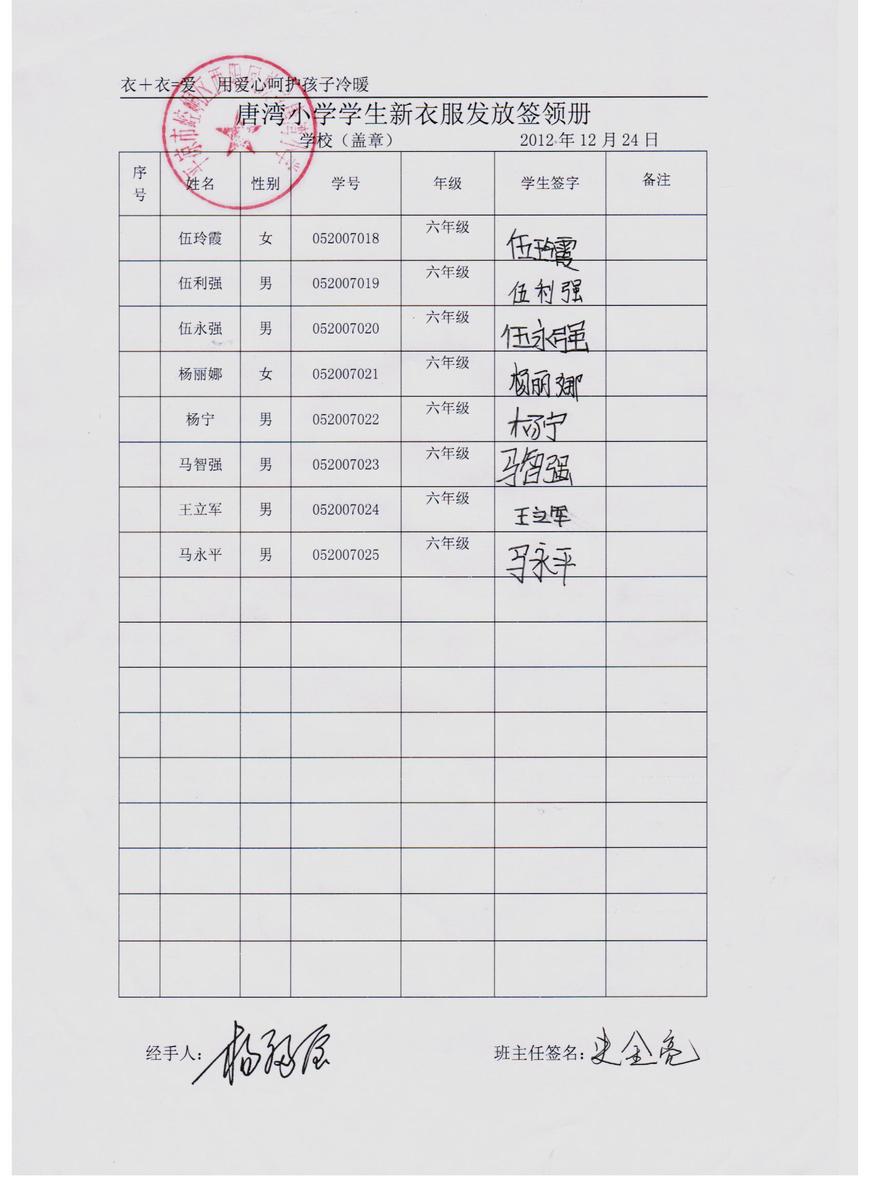 衣＋衣=爱 用爱心呵护孩子冷暖
唐湾小学学生新衣服发放签领册
学校（盖章） 2012 年 12 月 24 日
序号 姓名 性别 学号 年级 学生签字 备注
伍玲霞 女 052007018 六年级 伍玲霞
伍利强 男 052007019 六年级 伍利强
伍永强 男 052007020 六年级 伍永强
杨丽娜 女 052007021 六年级 杨丽娜
杨宁 男 052007022 六年级 杨宁
马智强 男 052007023 六年级 马智强
王立军 男 052007024 六年级 王立军
马永平 男 052007025 六年级 马永平
经手人： 班主任签名：史金亮